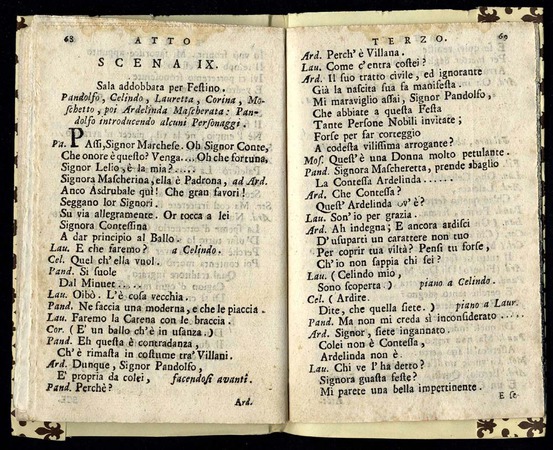 68
ATTO
SCENA IX.
Sala addobbata per Festino.
Pandolfo, Celindo, Lauretta, Corina, Mo-
schetto, poi Ardelinda Mascherata: Pan-
dolfo introducendo alcuni Personaggi.
Pa. PAssi, Signor Marchese. Oh Signor Conte,
Che onore è questo? Venga.... Oh che fortuna,
Signor Lelio, è la mia?....
Signora Mascherina, ella è Padrona, ad Ard.
Anco Asdrubale quì! Che gran favori!
Seggano lor Signori.
Su via allegramente. Or tocca a lei
Signora Contessina
A dar principio al Ballo.
Lau. E che faremo? a Celindo.
Cel. Quel ch'ella vuol.
Pand. Si suole
Dal Minuet....
Lau. Oibò. L'è cosa vecchia.
Pand. Ne faccia una moderna, e che le piaccia.
Lau. Faremo la Catena con le braccia.
Cor. (E' un ballo ch'è in usanza.)
Pand. Eh questa è contradanza,
Ch'è rimasta in costume tra' Villani.
Ard. Dunque, Signor Pandolfo,
E' propria da colei, facendosi avanti.
Pand. Perchè?
Ard.
TERZO.
69
Ard. Perch' è Villana.
Lau. Come c'entra costei?
Ard. Il suo tratto civile, ed ignorante
Già la nascita sua fa manifesta.
Mi maraviglio assai, Signor Pandolfo,
Che abbiate a questa Festa
Tante Persone Nobili invitate;
Forse per far corteggio
A codesta vilissima arrogante?
Mos. Quest' è una Donna molto petulante.
Pand. Signora Mascheretta, prende sbaglio
La Contessa Ardelinda......
Ard. Che Contessa?
Quest' Ardelinda ov' è?
Lau. Son' io per grazia.
Ard. Ah indegna; E ancora ardisci
D'usuparti un carattere non tuo
Per coprir tua viltà? Pensi tu forse,
Ch'io non sappia chi sei?
Lau. (Celindo mio,
Sono scoperta) piano a Celindo.
Cel. (Ardire.
Dite, che quella siete.) piano a Laur.
Pand. Ma non mi creda sì inconsiderato....
Ard. Signor, siete ingannato.
Colei non è Contessa,
Ardelinda non è.
Lau. Chi ve l'ha detto?
Signora guasta feste?
Mi parete una bella impertinente.
E se